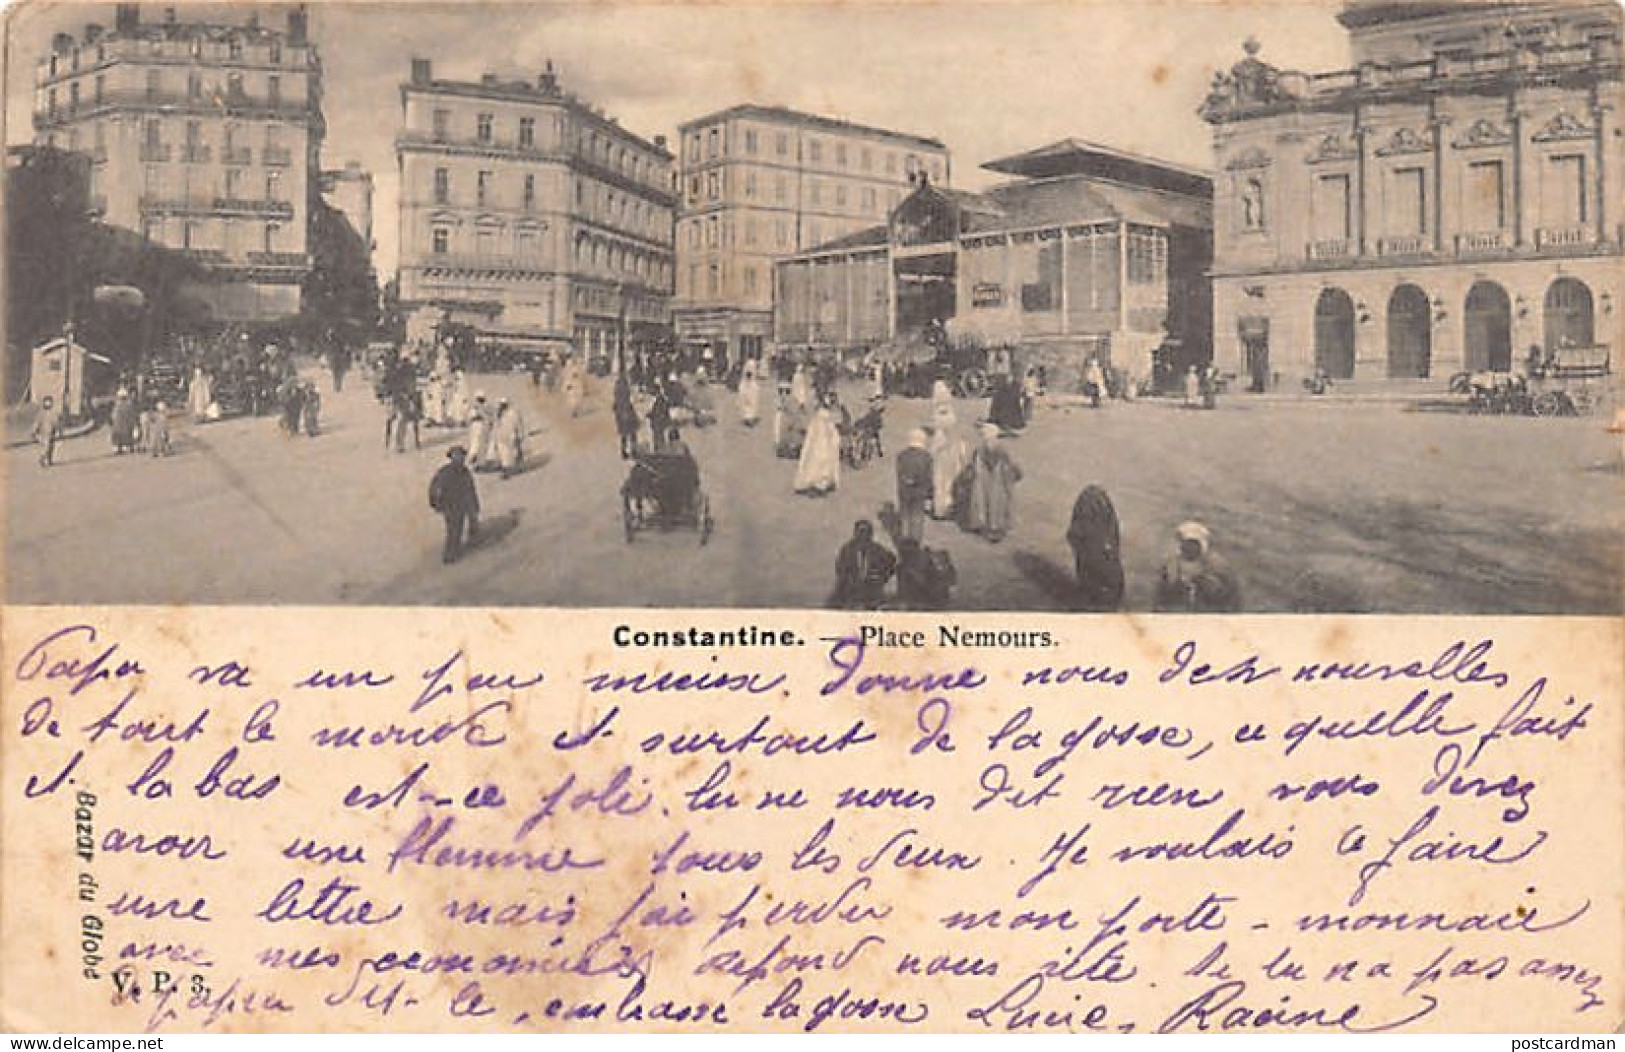 Constantine. — Place Nemours.
Papa va un peu mieux. Donne nous des nouvelles
de tout le monde et surtout de la gosse, ce quelle fait
et la bas est-ce joli. tu ne nous dit rien vous devez
avoir une flemme tous les deux. Je voulais te faire
une lettre mais j'ai perdu mon porte-monnaie
avec mes economies repond nous vite. Si tu n'a pas assez
papa dit-le, embrasse la gosse Lucie. Racine
Bazar du Globe
V. P. 3.
postcardman